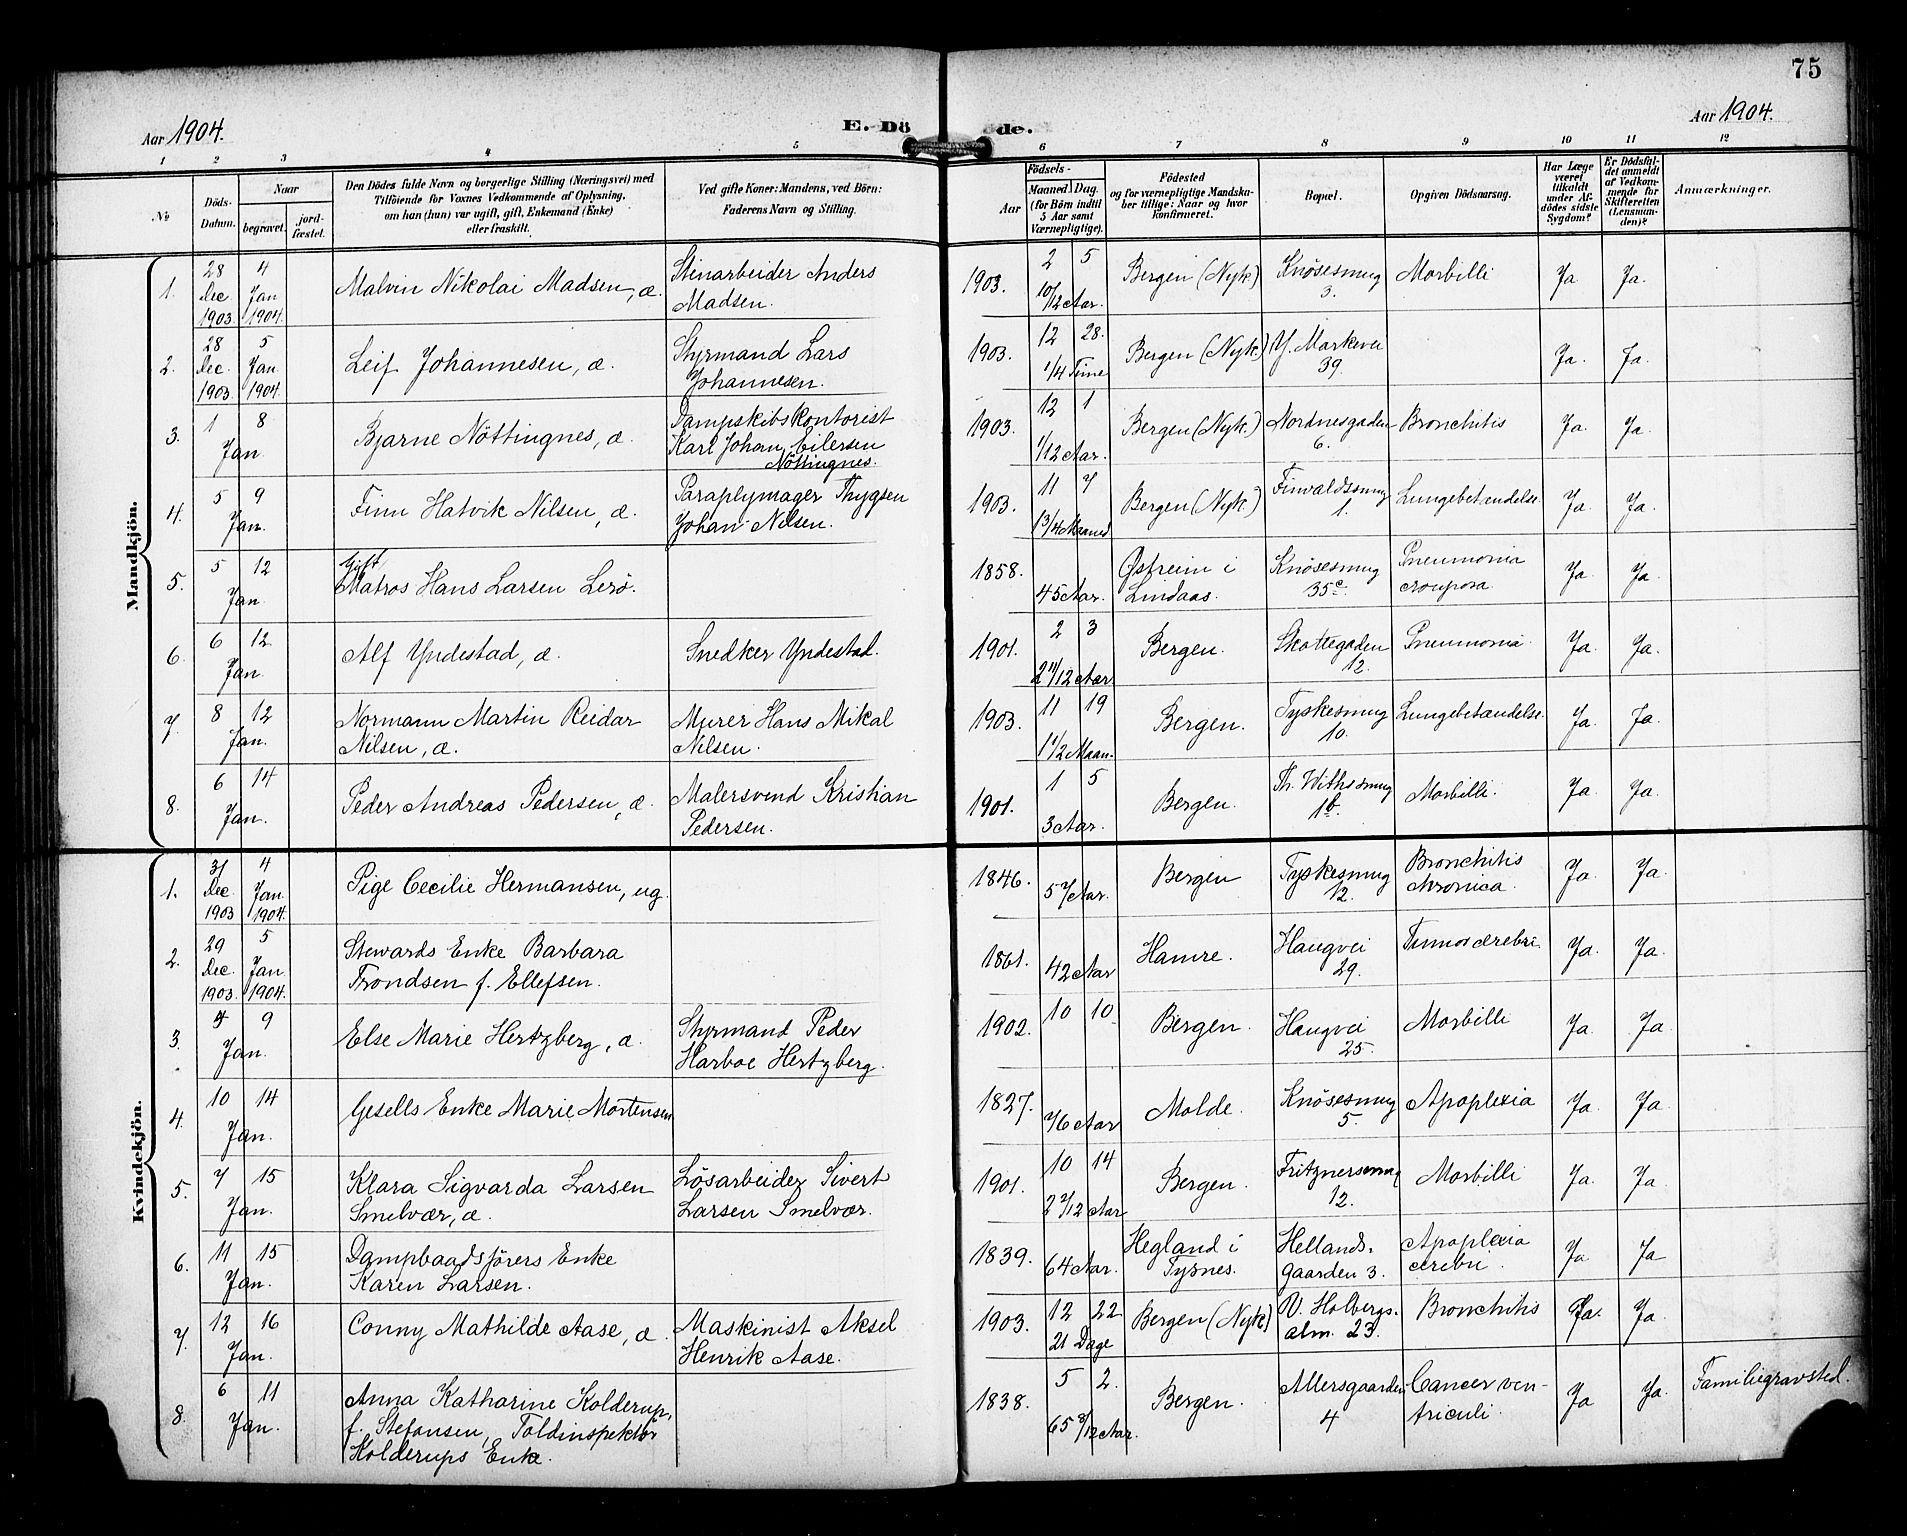 75
Aar 1904.
E. Dö de.
Aar 1904.
1 2 3 4 5 6 7 8 9 10 11 12
No
Döds-Datum.
Naar
begravet.
jord-fæstet.
Den Dödes fulde Navn og borgerlige Stilling (Næringsvei) med
Tilföiende for Voxnes Vedkommende af Oplysning,
om han (hun) var ugift, gift, Enkemand (Enke)
eller fraskilt.
Ved gifte Koner: Mandens, ved Börn:
Faderens Navn og Stilling.
Födsels-
Aar
Maaned Dag.
(for Börn indtil
5 Aar samt
Værnepligtige).
Födested
og for værnepligtige Mandska-
ber tillige: Naar og hvor
konfirmeret.
Bopæl.
Opgiven Dödsaarsag.
Har Læge
været
tilkaldt
under Af-
dödes sidste
Sygdom?
Er Dödsfal-
det anmeldt
af Vedkom-
mende for
Skifteretten
(Lensman-
den)?
Anmærkninger.
Mandkjön.
1. 28 Dec 1903. 4 Jan 1904. Malvin Nikolai Madsen, æ. Stenarbeider Anders
Madsen. 1903. 2 5 10/12 Aar. Bergen (Nyk.) Knösesmug
3. Morbilli Ja. Ja.
2. 28 Dec. 1903. 5 Jan. 1904. Leif Johannesen, æ. Styrmand Lars
Johannesen. 1903. 12 28. 1/4 Time Bergen (Nyk.) Y. Markevei
39. Ja. Ja.
3. 1 8 Jan. Bjarne Nöttingnes, æ. Dampskibskontorist
Karl Johan Eilersen
Nöttingnes. 1903. 12 1 1/12 Aar. Bergen (Nyk.) Nordnesgaden
6. Bronchitis Ja. Ja.
4. 5 9 Jan. Finn Hatvik Nilsen, æ. Paraplymager Thygsen
Johan Nilsen. 1903. 11 7 1 3/4 Maaned Bergen (Nyk.)
1. Lungebetændelse. Ja. Ja.
5. 5 12 Jan. Gift
Matros Hans Larsen Lerö. 1858. 45 Aar. Østreim i
Lindaas. Knösesmug
35c. Pneumonia
crouposa Ja. Ja.
6. 6 12 Jan. Alf Yndestad, æ. Snedker Yndestad. 1901. 2 3 2 11/12 Aar Bergen. Skottegaden
12. Pneumonia. Ja. Ja.
7. 8 12 Jan. Normann Martin Reidar
Nilsen, æ. Murer Hans Mikal
Nilsen. 1903. 11 19 1 1/2 Maan. Bergen. Tyskesmug
10. Lungebetændelse. Ja. Ja.
8. 6 14 Jan. Peder Andreas Pedersen, æ. Malersvend Kristian
Pedersen. 1901. 1 5 3 Aar. Bergen. Th. Withs smug
1b. Morbilli. Ja. Ja.
Kvindekjön.
1. 31 Dec 1903 4 Jan. 1904. Pige Cecilie Hermansen, ug. 1846. 57 Aar. Bergen Tyskesmug
12. Bronchitis
chronica. Ja. Ja.
2. 29 Dec. 1903. 5 Jan. 1904. Stewards Enke Barbara
Trondsen f. Ellefsen. 1861. 42 Aar Hamre. Haugvei
29. Tumor cerebri Ja. Ja.
3. 4 9 Jan. Else Marie Hertzberg, æ. Styrmand Peder
Harboe Hertzberg. 1902. 10 10 Bergen. Haugvei
25. Morbilli Ja. Ja
4. 10 14 Jan. Gesells Enke Marie Mortensen 1827. 76 Aar Molde. Knösesmug
5. Apoplexia Ja. Ja
5. 7 15 Jan. Klara Sigvarda Larsen
Smelvær, æ. Lösarbeider Sivert
Larsen Smelvær. 1901. 10 14 2 2/12 Aar Bergen. Fritznersmug
12. Morbilli Ja. Ja.
6. 11 15 Jan. Dampbaadsförers Enke
Karen Larsen. 1839. 64 Aar. Hegland i
Tysnes. Hellands-
gaarden 3. Apoplexia
cerebri. Ja Ja
7. 12 16 Jan. Conny Mathilde Aase, æ. Maskinist Aksel
Henrik Aase. 1903. 12 22 21 Dage Bergen (Nyk) V. Holbergs-
alm. 23. Bronchitis Ja. Ja
8. 6 11 Jan. Anna Katharine Kolderup,
f. Stefansen, Toldinspektör
Kolderups Enke. 1838. 5 2. 65 8/12 Aar. Bergen. Allersgaarden
4 Cancer ven-
triculi. Ja Ja. Familiegravsted.